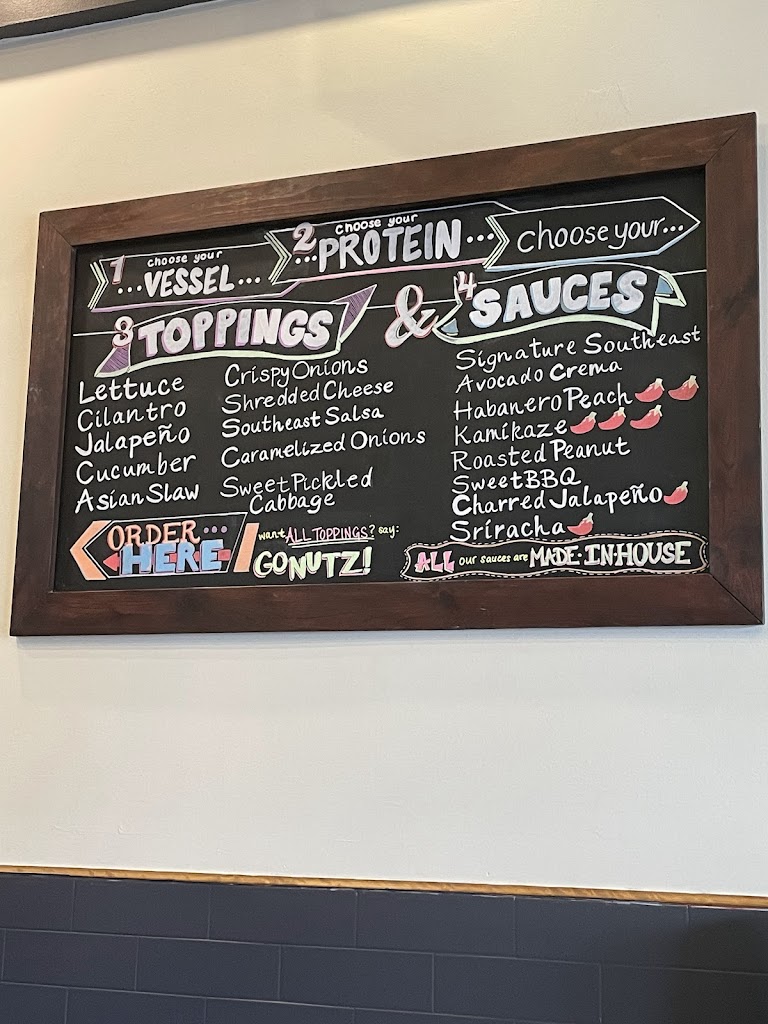 1 choose your
...VESSEL...
2 choose your
...PROTEIN...
choose your...
3 TOPPINGS
&
4 SAUCES
Lettuce
Cilantro
Jalapeño
Cucumber
Asian Slaw
Crispy Onions
Shredded Cheese
Southeast Salsa
Caramelized Onions
Sweet Pickled
Cabbage
Signature Southeast
Avocado Crema
Habanero Peach
Kamikaze
Roasted Peanut
Sweet BBQ
Charred Jalapeño
Sriracha
ORDER...
HERE
want ALL TOPPINGS? say:
GO NUTZ!
ALL our sauces are MADE·IN·HOUSE